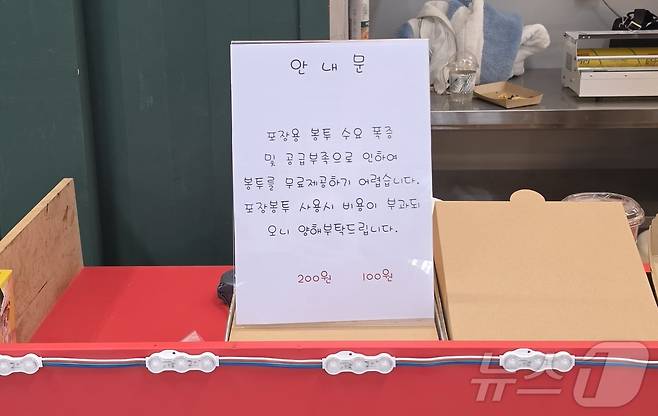 안 내 문
포장용 봉투 수요 폭증
및 공급부족으로 인하여
봉투를 무료제공하기 어렵습니다.
포장봉투 사용시 비용이 부과되
오니 양해부탁드립니다.
200원 100원
뉴스1